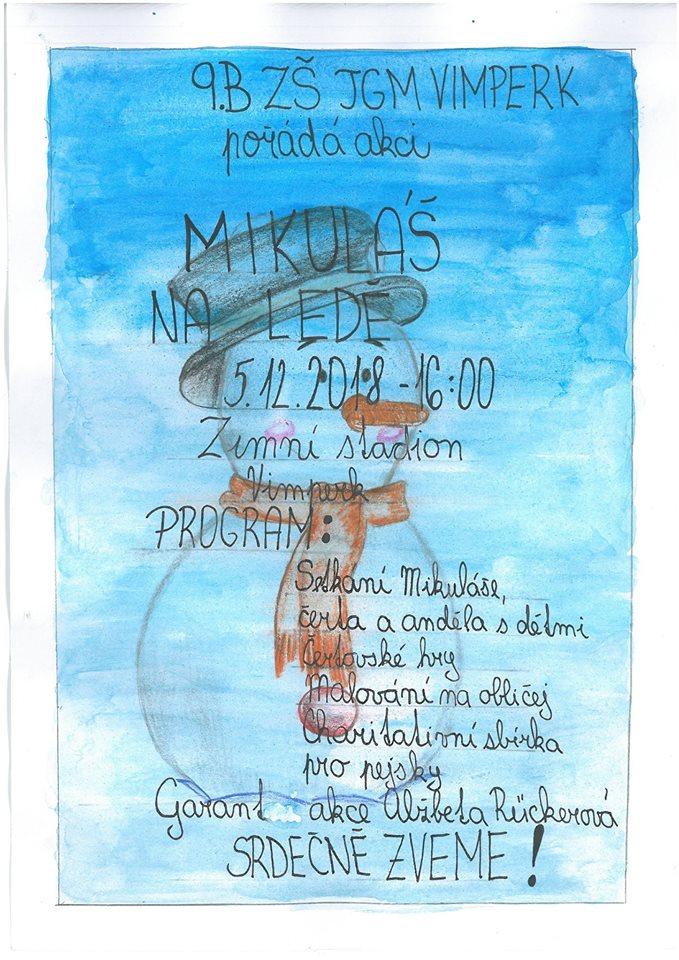 9.B ZŠ JGM VIMPERK
pořádá akci
MIKULÁŠ
NA LEDĚ
5.12.2018 - 16:00
Zimní stadion
Vimperk
PROGRAM:
Setkání Mikuláše,
čerta a anděla s dětmi
Čertovské hry
Malování na obličej
Charitativní sbírka
pro pejsky
Garant akce Alžbeta Rückerová
SRDEČNĚ ZVEME!